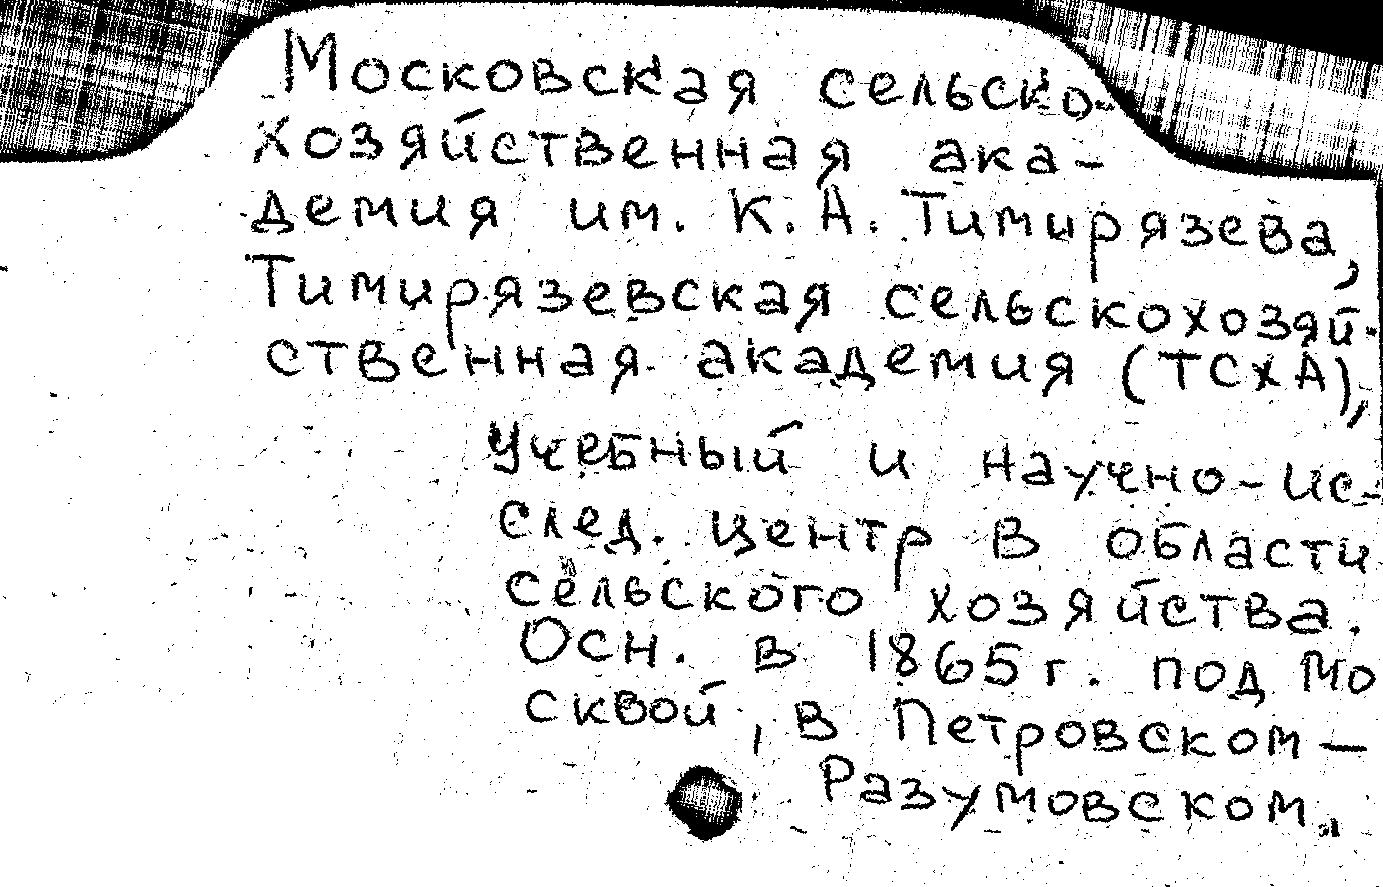 Московская сельско-
хозяйственная ака-
демия им. К. А. Тимирязева,
Тимирязевская сельскохозяй-
ственная академия (ТСХА),
учебный и научно-ис-
след. центр в области
сельского хозяйства.
Осн. в 1865 г. под Мо
сквой, в Петровском –
Разумовском.